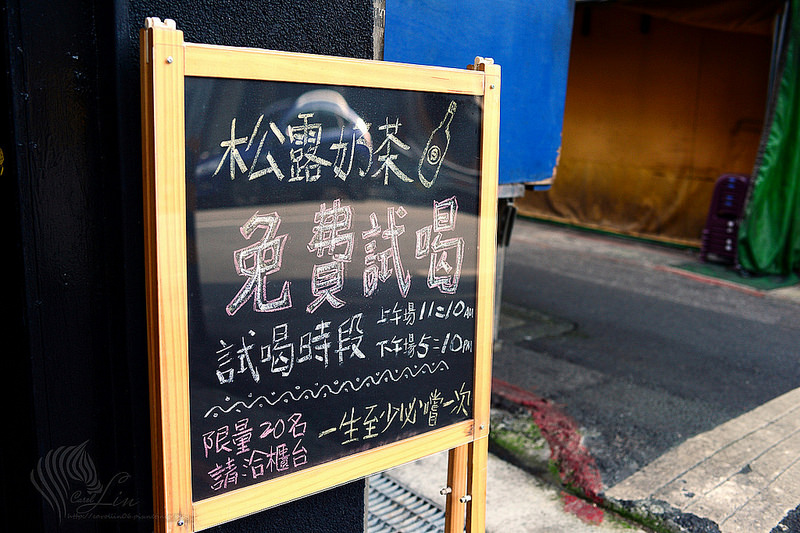 松露奶茶
免費試喝
試喝時段 上午場11:10AM
下午場5:10PM
限量20名
請洽櫃台
一生至少必嚐一次
Carol Lin